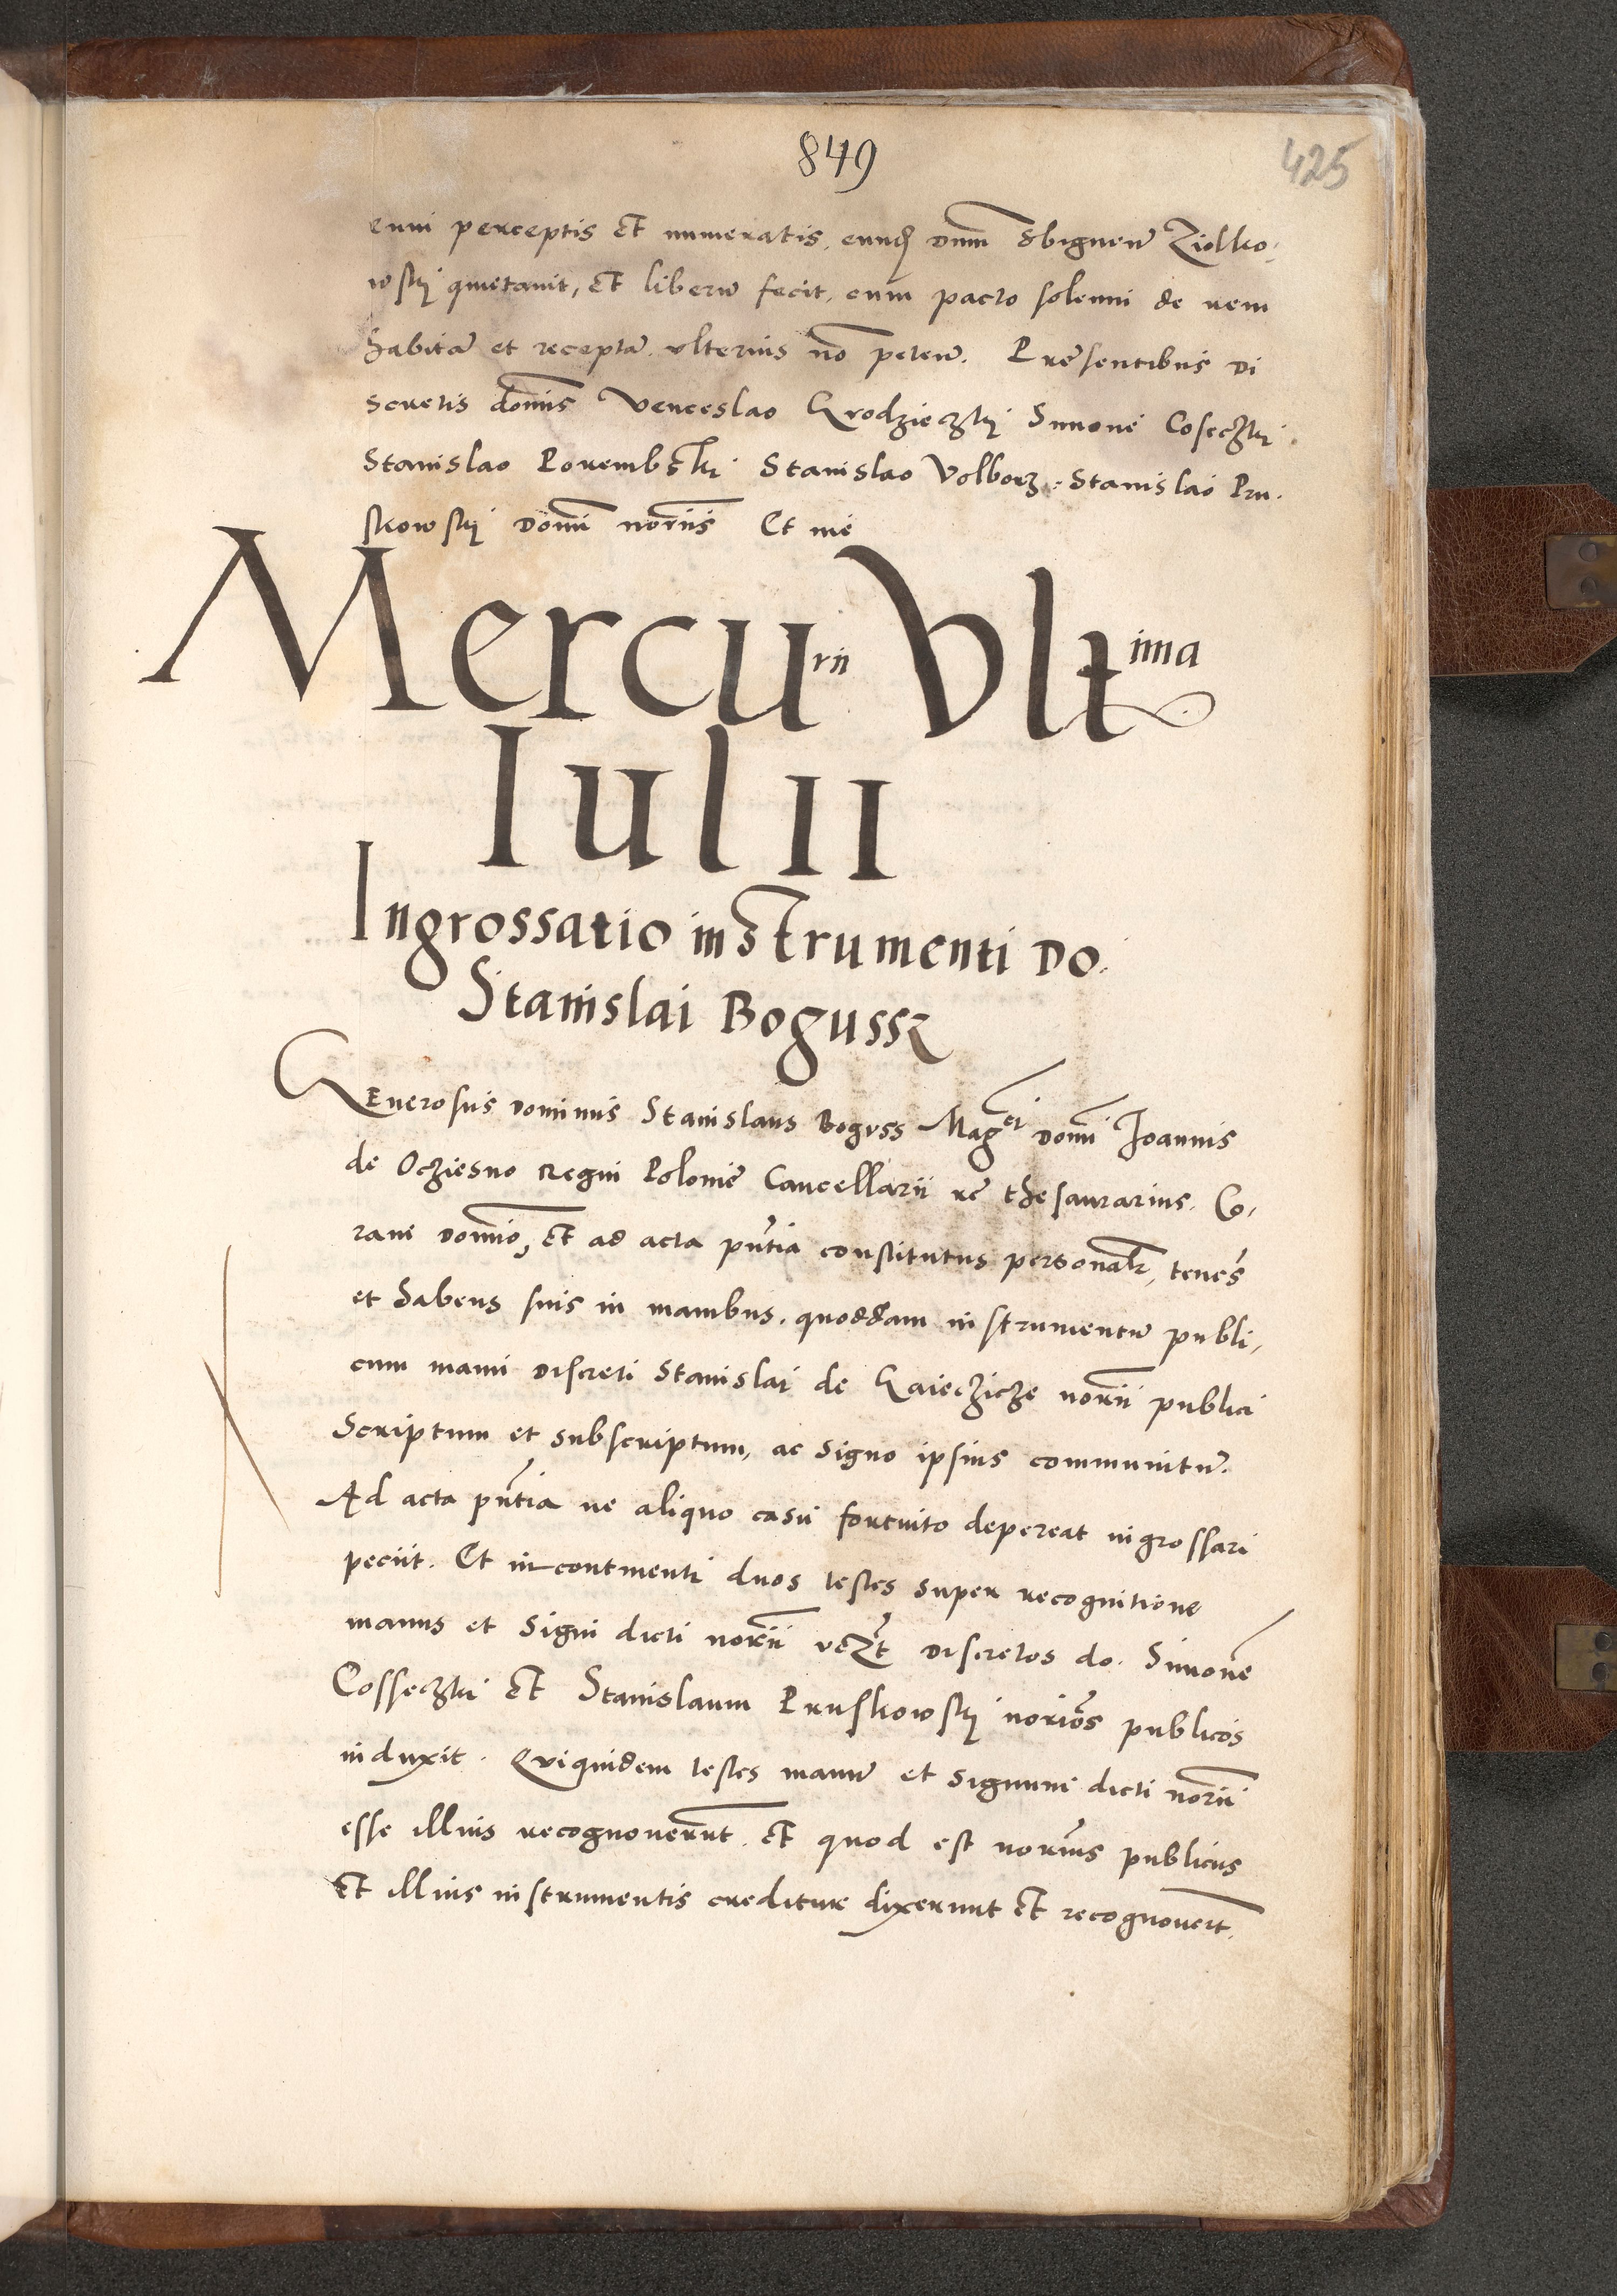 849
425
cum perceptis et numeratis, eund dnm Sbigneu Ziolko-
wskj quietavit, et liberu fecit, cum pacto solenni de rem
habita et recepta ulterius no peten. Presentibus di
scretis domis Venceslao Grodzieczkj Simone Coseczki
Stanislao Porembski Stanislao Volborz Stanislao Pru-
skowskj domi noriis Et me
Mercurii Ultima
Iulii
Ingrossatio instrumenti Do.
Stanislai Bogussz
Generosus Dominus Stanislaus Boguss Magci domi Joannis
de Ocziesno Regni Polonie Cancellarii rc thesaurarius. Co-
ram domio, et ad acta pntia constitutus personalr, tenes
et habens suis in manibus, quoddam instrumentu publi-
cum manu discreti Stanislai de Gaieczicze norii publici
Scriptum et subscriptum, ac signo ipsius communitu.
Ad acta pntia ne aliquo casu fortuito depereat ingrossari
peciit. Et incontinenti duos testes super recognitione
manus et signi dicti norii vezt discretos do. Simone
Cosseczki et Stanislaum Pruskowskj norios publicos
induxit. Quiquidem testes manu et signum dicti norii
esse illius recognoverunt. et quod est norius publicus
et illius instrumentis creditur dixerunt et recognovert.